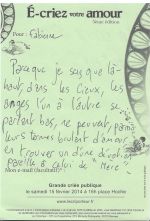 É-criez votre amour
5ème édition
Pour : Fabienne
Parce que je sais que là-
haut, dans les Cieux, les
anges l'un à l'autre se
parlant bas, ne peuvent, parmi
leurs termes brûlant d'amour
en trouver un d'une dévotion
pareille à celui de "Mère"
Mon e-mail (facultatif) :
Grande criée publique
le samedi 15 février 2014 à 16h place Hoche